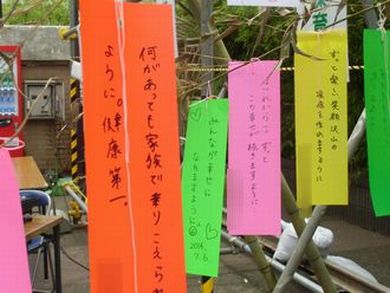 何があっても家族で乗りこえられ
ように。健康第一。
みんなが幸せに
なれますように
2014.
7.6
これからも ずっと
この幸せが続きますように
ずっと愛し、笑顔沢山の
家庭を作れますように